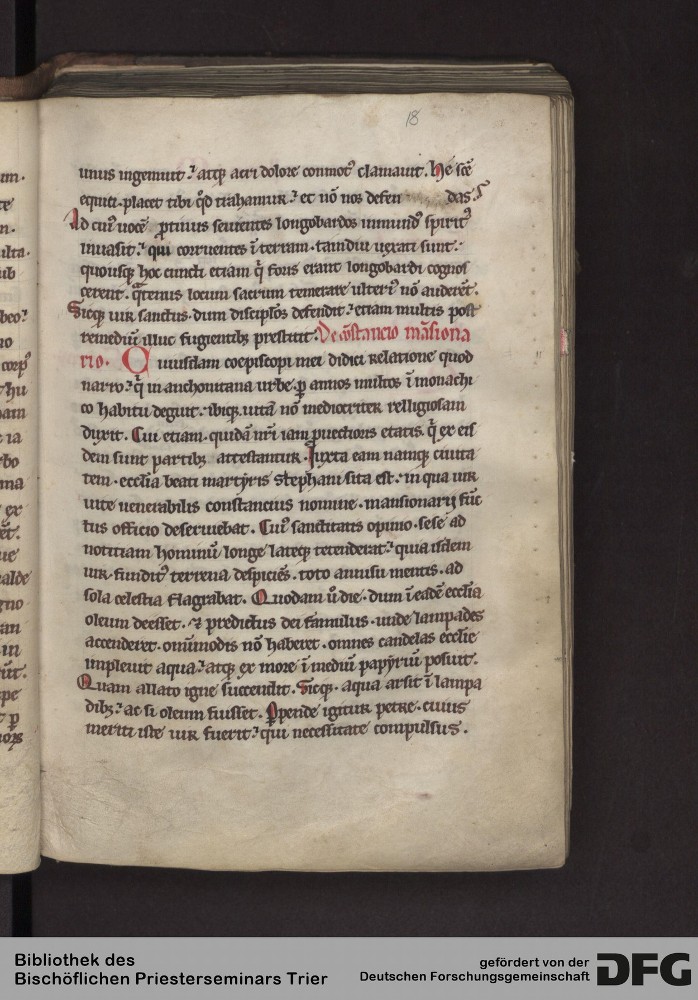 18
unus ingemuit. atq; acri dolore conmot᷒ clamauit. he sc̄e
equiti. placet tibi qd̄ trahamur. et nō nos defen das.
Ad cui᷒ uocē ꝓtinus seuientes longobardos inmund᷒ spirit᷒
inuasit. qui corruentes ī terram. tamdiu uexati sunt.
quousq; hoc cuncti etiam q̄ foris erant longobardi cognos
cerent. qͣtenus locum sacrum temerare ulteri᷒ nō auderēt.
Sicq; uir sanctus. dum discipl̄os defendit. etiam multis post
remediū illuc fugientib; prestitit. De 9stancio māsiona
rio. Cuiusdam coepiscopi mei didici relatione quod
narro. q̄ in anchonitana urbe. ꝑ annos multos ī monachi
co habitu deguit. ibiq; uitā nō mediocriter relligiosam
duxit. Cui etiam. quidā nr̄i iam ꝓuectioris etatis. q̄ ex eis
dem sunt partib; attestantur. Juxta eam namq; ciuita
tem. eccl̄ia beati martyris stephani sita est. in qua uir
uite uenerabilis constancius nomine. mansionarij fūc
tus officio deseruiebat. Cui᷒ sanctitatis opinio. sese ad
notitiam hominū longe lateq; tetenderat. quia isdem
uir. fundit᷒ terrena despiciēs. toto annisu mentis. ad
sola celestia flagrabat. Quodam u̅ die. dum ī eadē eccl̄ia
oleum deesset. ⁊ predictus dei famulus. unde lampades
accenderet. omīmodis nō haberet. omnes candelas eccl̄ie
impleuit aqua. atq; ex more ī mediū papyrū posuit.
Quam allato igne succendit. Sicq; aqua arsit ī lampa
dib; ac si oleum fuisset. Perpende igitur petre. cuius
meriti iste uir fuerit. qui necessitate compulsus.
Bibliothek des
Bischöflichen Priesterseminars Trier
gefördert von der
Deutschen Forschungsgemeinschaft
DFG